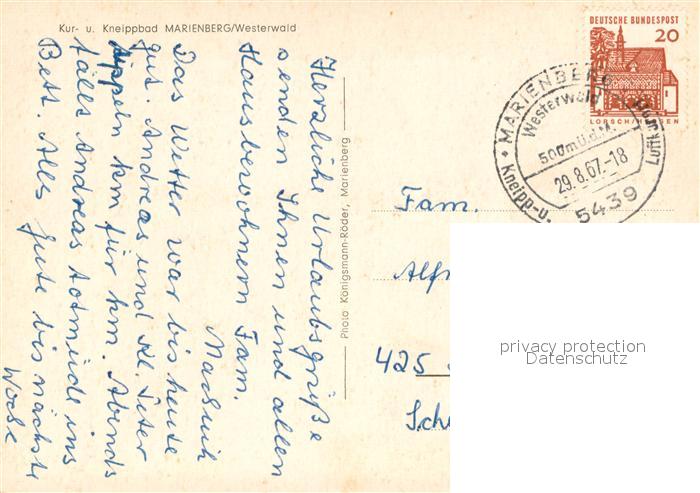 Kur- u. Kneippbad MARIENBERG/Westerwald
Herzliche Urlaubsgrüße
senden Ihnen und allen
Hausbewohnern Fam.
Das Wetter war bis heute
gut. Andreas und Kl. Peter
tippeln km für km. Abends
fällt Andreas totmüde ins
Bett. Alles Gute bis nächste
Woche
Photo Königsmann-Röder, Marienberg
DEUTSCHE BUNDESPOST
20
LORSCH/HESSEN
MARIENBERG
Westerwald
500m ü.d.M.
29.8.67.-18
5439
Kneipp-u.
Luftkurort
Fam.
Alf
425
Sch
privacy protection
Datenschutz